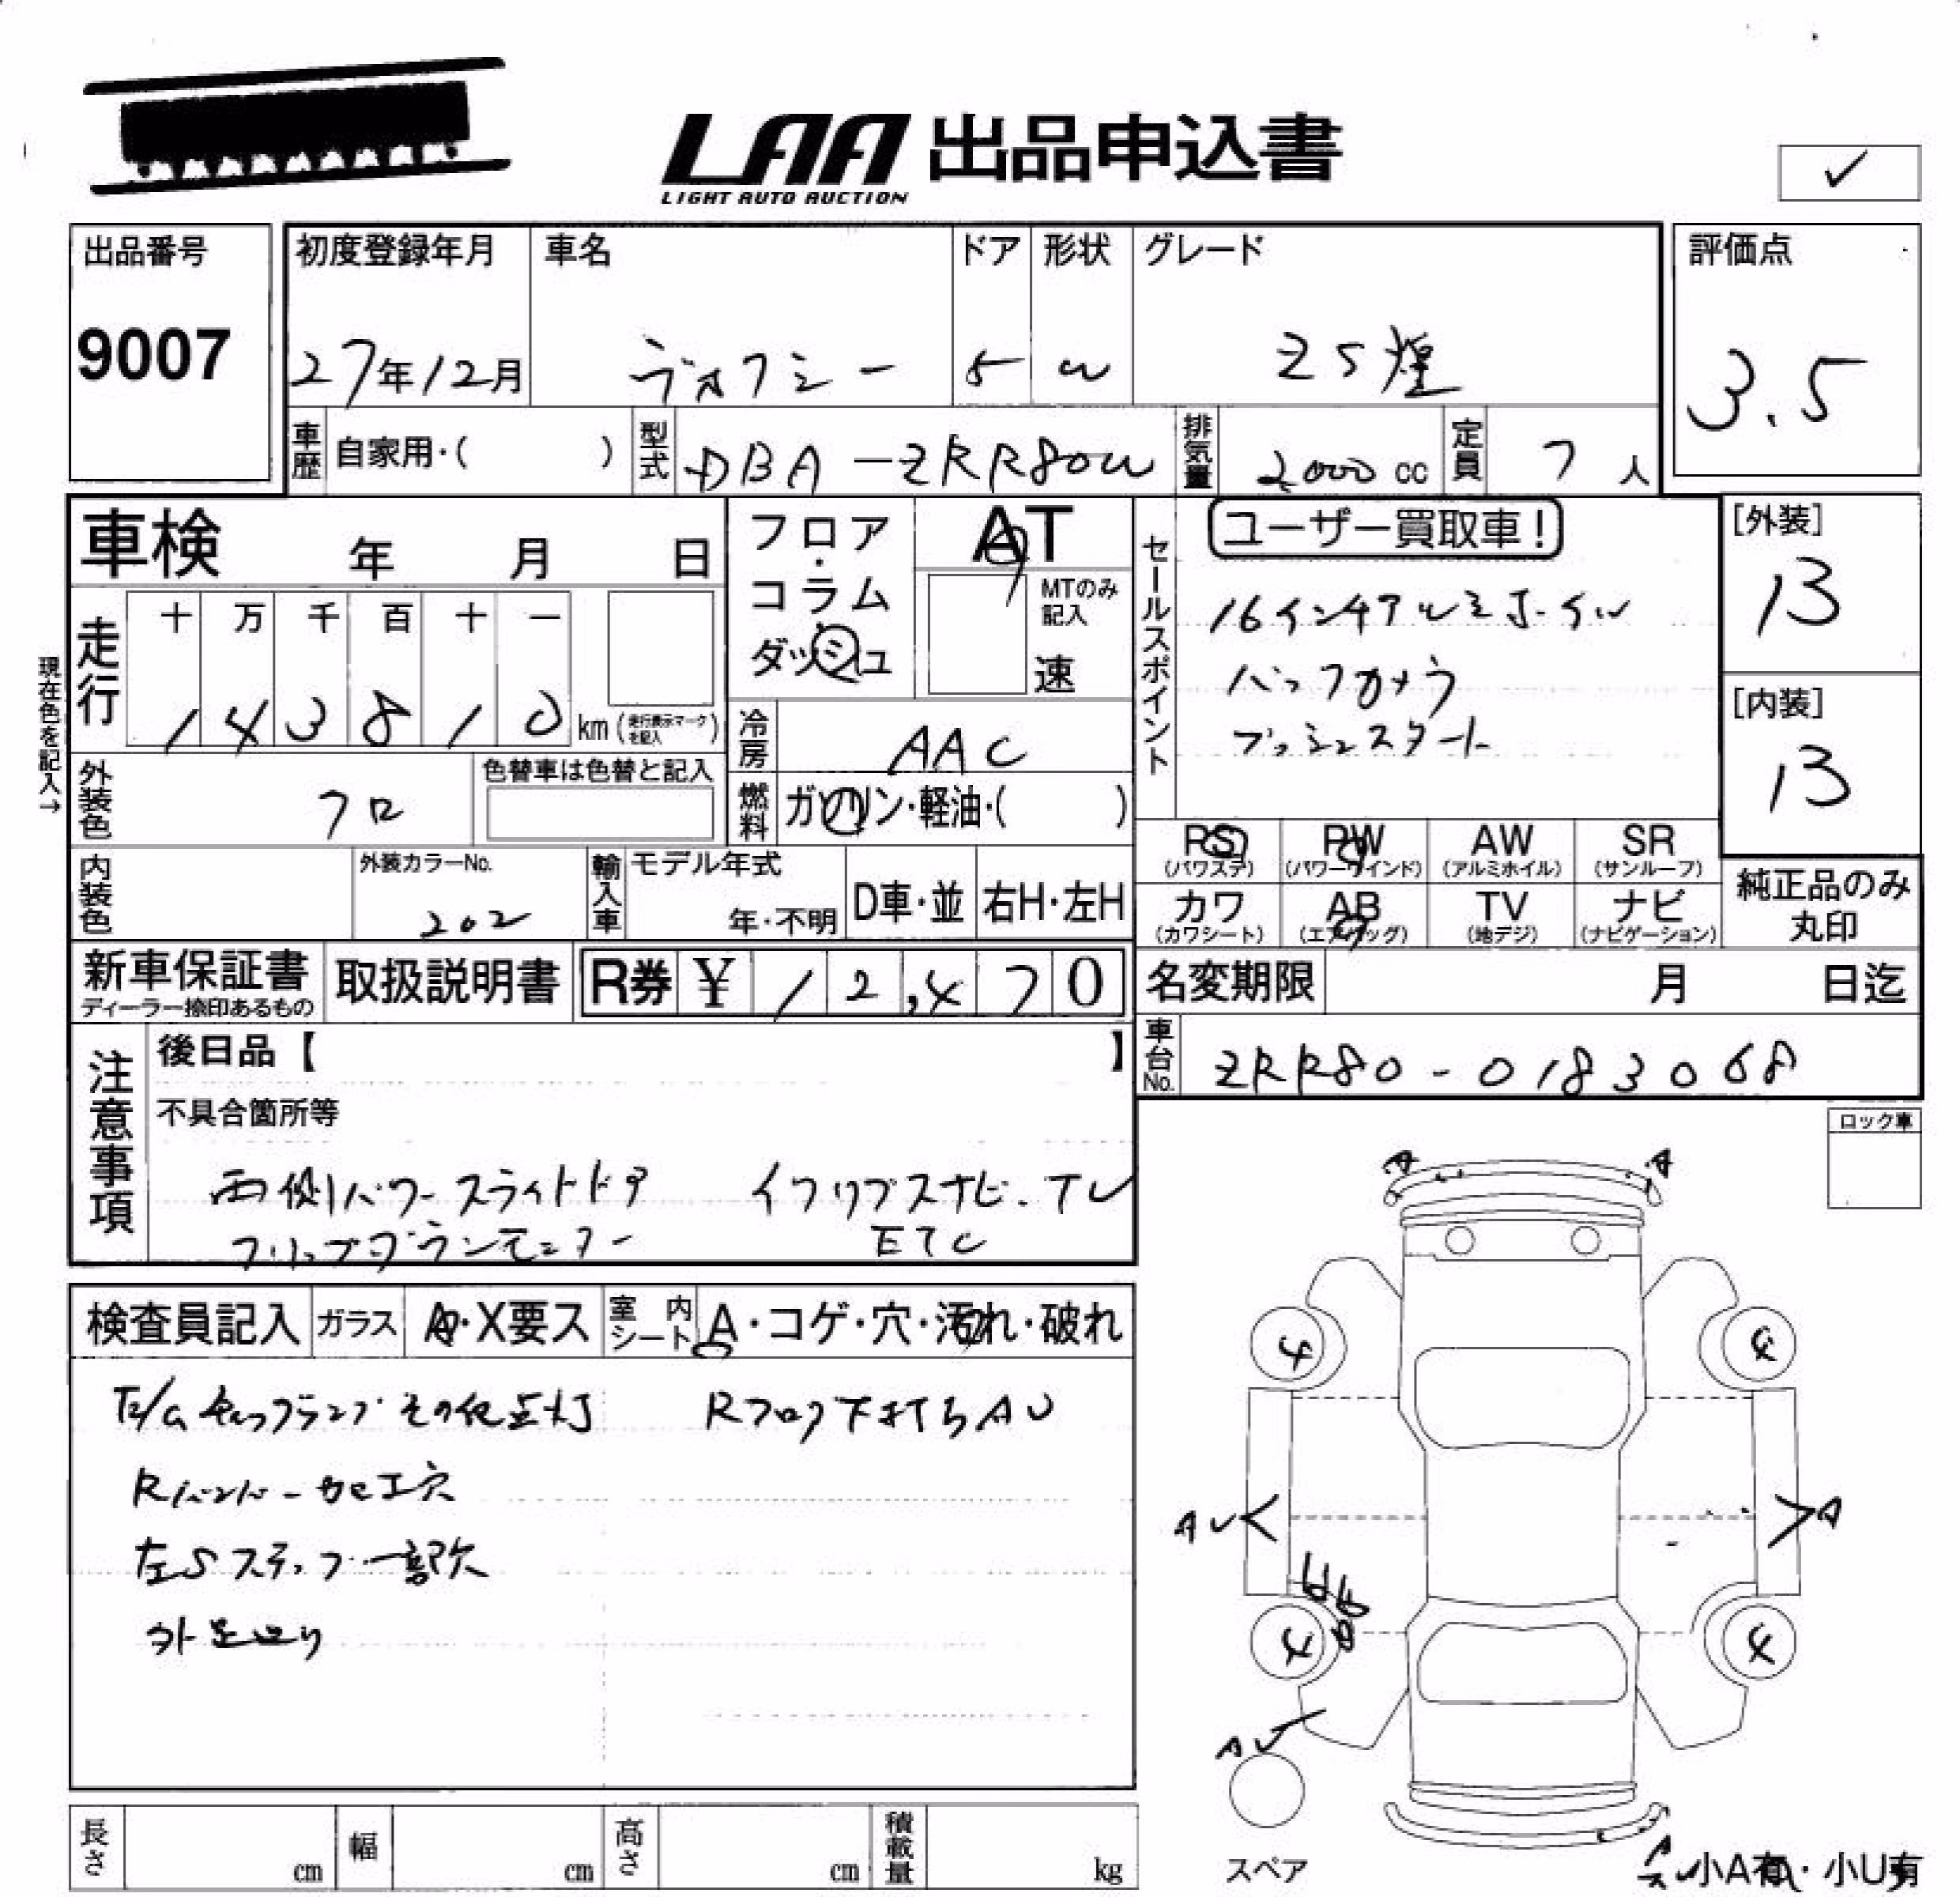 LAA 出品申込書
LIGHT AUTO AUCTION
✓
出品番号
9007
初度登録年月
27年12月
車名
ヴォクシー
ドア
5
形状
W
グレード
ZS煌
評価点
3.5
車歴 自家用・( )
型式 DBA-ZRR80W
排気量 2000 cc
定員 7 人
車検 年 月 日
現在色を記入→
走行 十 万 千 百 十 一
143810 km (走行表示マークを記入)
外装色 クロ
色替車は色替と記入
内装色
外装カラーNo.
202
フロア・コラム・ダッシュ
AT
MTのみ記入
速
冷房 AAC
燃料 ガソリン・軽油・( )
輸入車 モデル年式
年・不明
D車・並
右H・左H
セールスポイント
ユーザー買取車!
16インチアルミホイル
バックカメラ
プッシュスタート
[外装]
13
[内装]
13
PS (パワステ)
PW (パワーウインド)
AW (アルミホイル)
SR (サンルーフ)
カワ (カワシート)
AB (エアバッグ)
TV (地デジ)
ナビ (ナビゲーション)
純正品のみ丸印
新車保証書
ディーラー捺印あるもの
取扱説明書
R券 ¥ 12,470
名変期限 月 日迄
車台No. ZRR80-0183068
注意事項
後日品【 】
不具合箇所等
両側パワースライドドア イクリプスナビ・TV
フリップダウンモニター ETC
ロック車
検査員記入
ガラス A・X要ス
室内シート A・コゲ・穴・汚れ・破れ
E/Gチェックランプその他点灯 Rフロア下打ちAU
Rバンパー加工穴
左Sステップ一部欠
外足廻り
A A
4 4
AU A
4 4
AU
スペア
A
小A有・小U有
長さ cm
幅 cm
高さ cm
積載量 kg